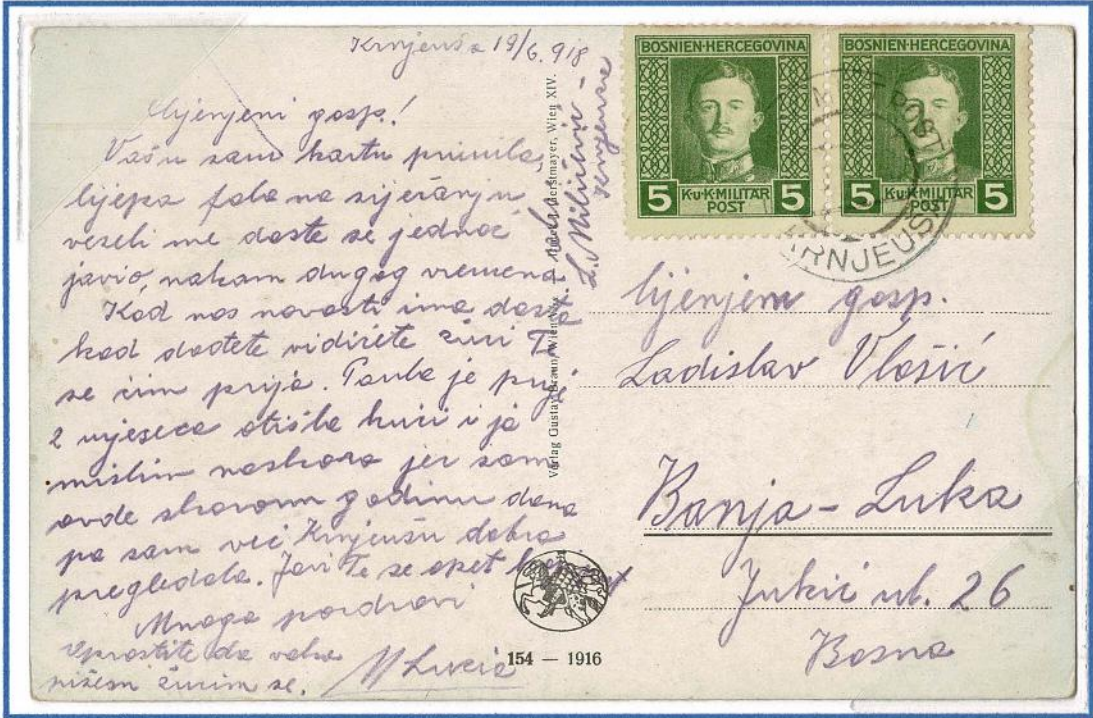 Krnjeuša 19/6. 918
Cijenjeni gosp!
Vašu sam kartu primila,
lijepa fala na sjećanju
veseli me da ste se jednoć
javio, nakon dugog vremena.
Kod nas novosti ima dosta
kad dođete vidićete
se čim prija. Paula je prije
2 mjeseca otišla kući i ja
mislim naskoro jer sam
ovde skorom godinu dana
pa sam već Krnjeušu dobro
pregledala. Javi Te se opet
Mnogo pozdravi
Oprostite da vako
pišem žurim se.
L. Miličević -
Krnjeuša
Verlag Gustav Braun, Wien
Wien XIV.
BOSNIEN-HERCEGOVINA
5 K.u.K. MILITÄR POST 5
BOSNIEN-HERCEGOVINA
5 K.u.K. MILITÄR POST 5
POST
KRNJEUŠ
Cijenjeni gosp.
Ladislav Vlašić
Banja-Luka
Jukić ul. 26
Bosna
154 — 1916